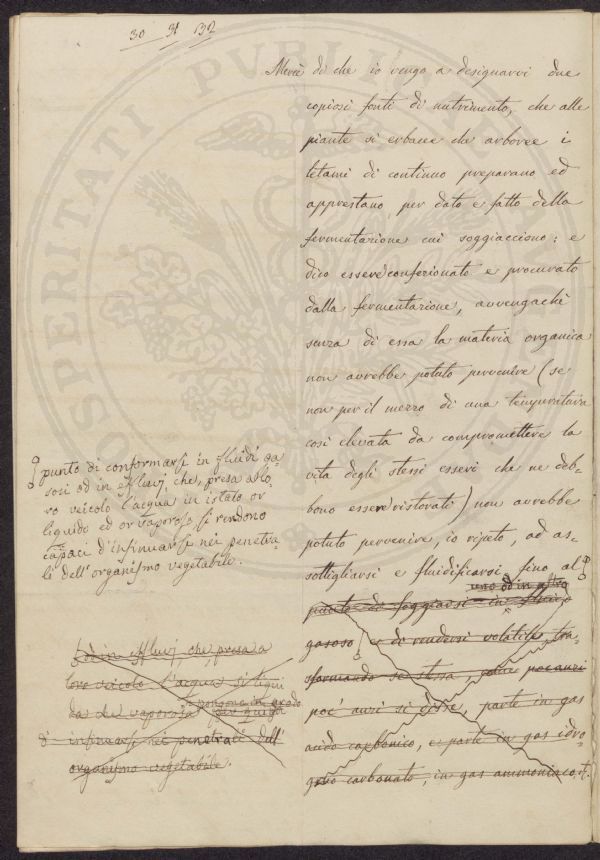 30 31 132
Mercè di che io vengo a designarvi due
copiosi fonti di nutrimento, che alle
piante sì erbacee che arboree i
letami di continuo preparano ed
apprestano per dato e fatto della
fermentazione cui soggiacciono: e
dico essere confezionato e procurato
dalla fermentazione, avvengachè
senza di essa la materia organica
non avrebbe potuto pervenire (se
non per il mezzo di una temperatura
così elevata da compromettere la
vita degli stessi esseri che ne deb-
bono essere ristorati) non avrebbe
potuto pervenire, io ripeto, ad as-
sottigliarsi e fluidificarsi fino al
uno od in altro
punto di foggiarsi in fluido
gasoso e di rendersi volatile tra-
sformando se stessa, poc'anzi
poc'anzi si disse, parte in gas
acido carbonico, e parte in gas idro-
geno carbonato, in gas ammoniaco,
punto di conformarsi in fluidi ga-
sosi od in effluvj che, presa a lo-
ro veicolo l'acqua in istato or
liquido ed or vaporoso si rendono
capaci d'insinuarsi nei penetra-
li dell'organismo vegetabile.
od in effluvj, che, presa a
loro veicolo l'acqua sì liqui
da che vaporosa pongono in grado
d'insinuarsi nei penetrali dell'
organismo vegetabile.
PROSPERITATI PUBLICAE